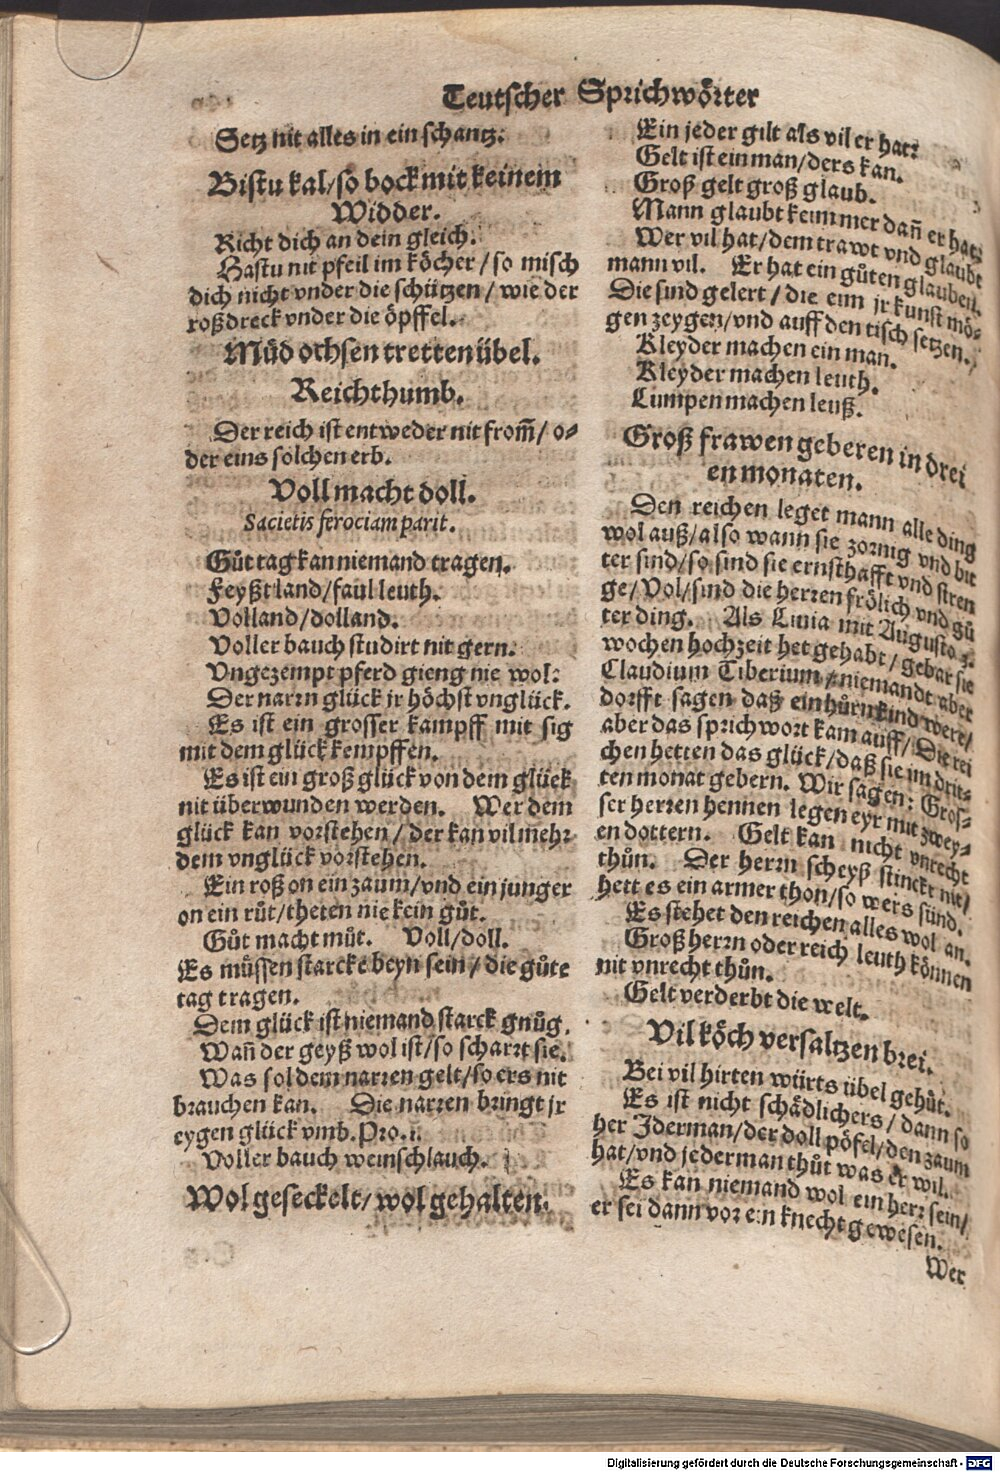 Teutscher Sprichwörter
Setz nit alles in ein schantz.
Bistu kal/so bock mit keinem
Widder.
Richt dich an dein gleich.
Hastu nit pfeil im köcher/so misch
dich nicht vnder die schützen/wie der
roßdreck vnder die öpffel.
Müd ochsen tretten übel.
Reichthumb.
Der reich ist entweder nit from̃/ o⸗
der eins solchen erb.
Voll macht doll.
Sacietis ferociam parit.
Gůt tag kan niemand tragen.
Feyßt land/faul leuth.
Volland/dolland.
Voller bauch studirt nit gern.
Vngezempt pferd gieng nie wol:
Der narrn glück jr höchst vnglück.
Es ist ein grosser kampff mit sig
mit dem glück kempffen.
Es ist ein groß glück von dem glück
nit überwunden werden. Wer dem
glück kan vorstehen/der kan vilmehr
dem vnglück vorstehen.
Ein roß on ein zaum/vnd ein junger
on ein růt/theten nie kein gůt.
Gůt macht můt. Voll/doll.
Es müssen starcke beyn sein/die gůte
tag tragen.
Dem glück ist niemand starck gnůg.
Wañ der geyß wol ist/so scharrt sie.
Was sol dem narren gelt/so ers nit
brauchen kan. Die narren bringt jr
eygen glück vmb. Pro. 1.
Voller bauch weinschlauch.
Wol geseckelt/wol gehalten.
Ein jeder gilt als vil er hat:
Gelt ist ein man/ders kan.
Groß gelt groß glaub.
Mann glaubt keim mer dañ er hat:
Wer vil hat/dem trawt vnd glaubt
mann vil. Er hat ein gůten glauben.
Die sind gelert/die eim jr kunst mö⸗
gen zeygen/vnd auff den tisch setzen.
Kleyder machen ein man.
Kleyder machen leuth.
Lumpen machen leuß.
Groß frawen geberen in drei
en monaten.
Den reichen leget mann alle ding
wol auß/also wann sie zornig vnd bit
ter sind/so sind sie ernsthafft vnd stren
ge/Vol/sind die herren frölich vnd gů
ter ding. Als Liuia mit Augusto 3.
wochen hochzeit het gehabt/gebar sie
Claudium Tiberium/niemandt aber
dorfft sagen daß ein hůrnkind were/
aber das sprichwort kam auff/Die rei
chen hetten das glück/daß sie im drit⸗
ten monat gebern. Wir sagen: Gros⸗
ser herren hennen legen eyr mit zwey⸗
en dottern. Gelt kan nicht vnrecht
thůn. Der herrn scheyß stinckt nit/
hett es ein armer thon/so wers sünd.
Es stehet den reichen alles wol an.
Groß herrn oder reich leuth können
nit vnrecht thůn.
Gelt verderbt die welt.
Vil köch versaltzen brei.
Bei vil hirten würts übel gehůt.
Es ist nicht schädlichers/dann so
her Jderman/der doll pöfel/den zaum
hat/vnd jederman thůt was er wil.
Es kan niemand wol ein herr sein/
er sei dann vor ein knecht gewesen.
Wer
Digitalisierung gefördert durch die Deutsche Forschungsgemeinschaft - DFG